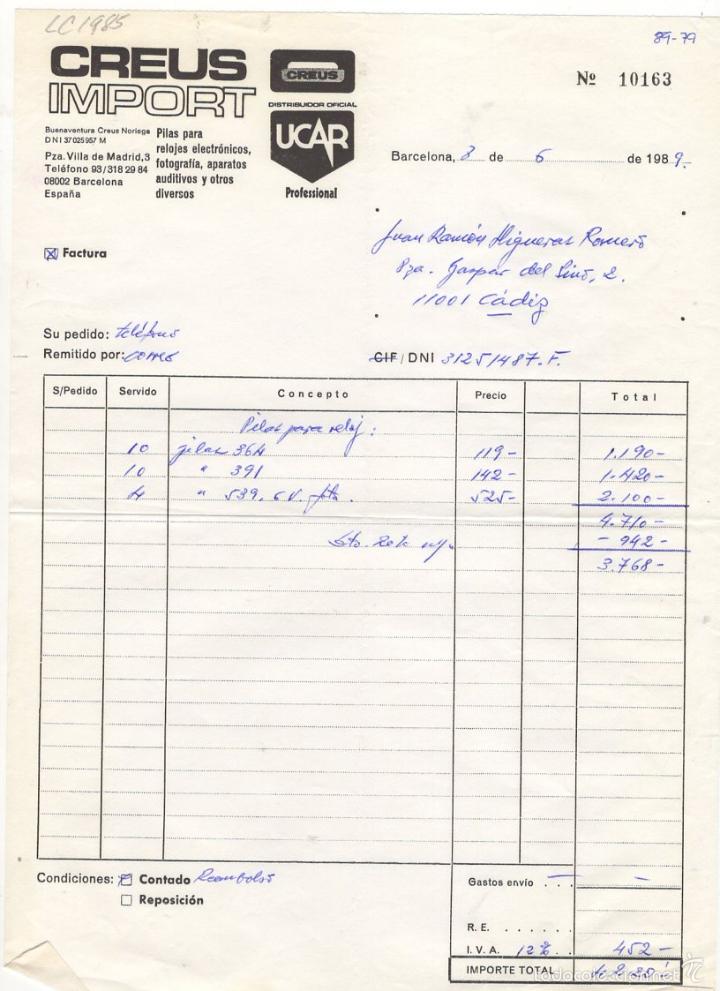 LC 1985
89-79
CREUS
IMPORT
CREUS
DISTRIBUIDOR OFICIAL
UCAR
Professional
Nº 10163
Buenaventura Creus Noriega
DNI 37025957 M
Pza. Villa de Madrid, 3
Teléfono 93/318 29 84
08002 Barcelona
España
Pilas para
relojes electrónicos,
fotografía, aparatos
auditivos y otros
diversos
Barcelona, 8 de 6 de 1989.
Juan Ramón Higueras Romero
Pza. Gaspar del Pino, 2.
11001 Cádiz
Factura
Su pedido: teléfono
Remitido por: correo
CIF / DNI 31251487.F.
S/Pedido Servido Concepto Precio Total
Pilas para reloj:
10 pilas 364 119- 1.190-
10 " 391 142- 1.420-
4 " 539. 6V. foto. 525- 2.100-
4.710-
Dto. 20% - 942-
3.768-
Condiciones: Contado Reembolso
Reposición
Gastos envío . . . - -
R. E. . . . . . .
I. V. A. 12% . . 452-
IMPORTE TOTAL 4.220'
todocoleccion.net